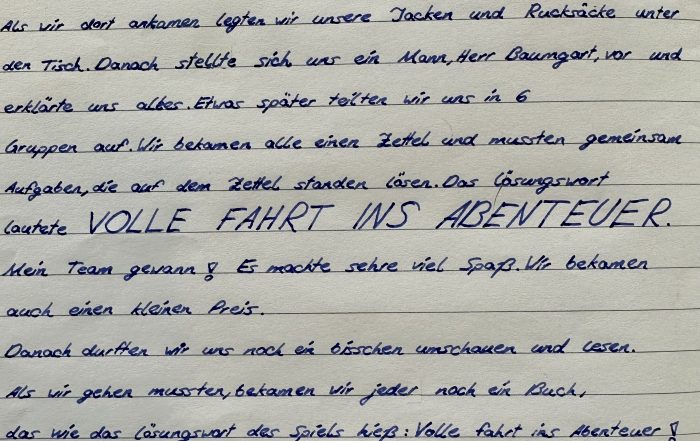 Als wir dort ankamen legten wir unsere Jacken und Rucksäcke unter
den Tisch. Danach stellte sich uns ein Mann, Herr Baumgart, vor und
erklärte uns alles. Etwas später teilten wir uns in 6
Gruppen auf. Wir bekamen alle einen Zettel und mussten gemeinsam
Aufgaben, die auf dem Zettel standen lösen. Das Lösungswort
lautete VOLLE FAHRT INS ABENTEUER.
Mein Team gewann! Es machte sehre viel Spaß. Wir bekamen
auch einen kleinen Preis.
Danach durften wir uns noch ein bisschen umschauen und lesen.
Als wir gehen mussten, bekamen wir jeder noch ein Buch,
das wie das Lösungswort des Spiels hieß: Volle fahrt ins Abenteuer!